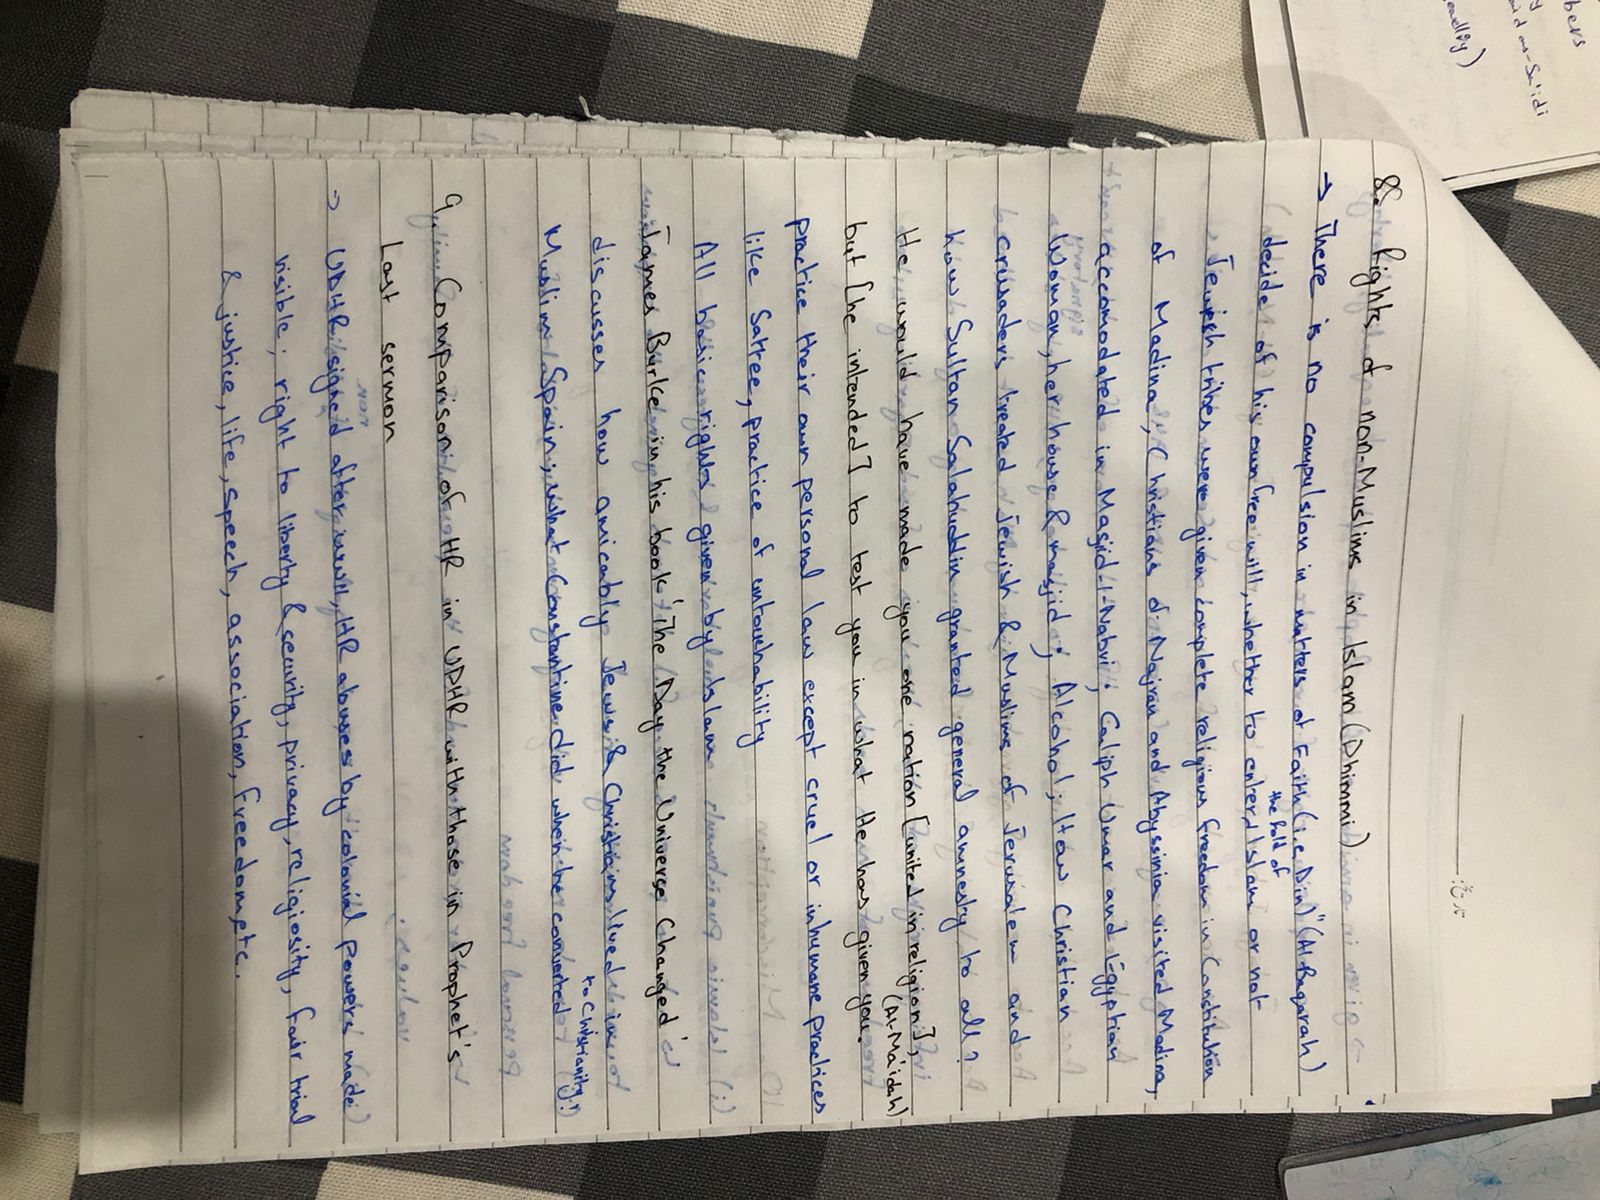 8. Rights of non-Muslims in Islam (Dhimmi)
→ There is no compulsion in matters of Faith (i.e. Din)" (Al-Baqarah)
decide of his own free will, whether to enter the fold of Islam or not
Jewish tribes were given complete religious freedom in Constitution
of Madina, Christians of Najran and Abyssinia visited Madina,
accomodated in Masjid-i-Nabvi; Caliph Umar and Egyptian
Woman, her house & masjid; Alcohol; How Christian
crusaders treated Jewish & Muslims of Jerusalem and
how Sultan Salahuddin granted general amnesty to all?
He would have made you one nation [united in religion],
but [he intended] to test you in what He has given you. (Al-Ma'idah)
practice their own personal law except cruel or inhumane practices
like Sattee, practice of untouchability
All basic rights given by Islam
James Burke in his book 'The Day the Universe Changed'
discusses how amicably Jews & Christians lived in
Muslim Spain; what Constantine did when he converted to Christianity (!)
9. Comparison of HR in UDHR with those in Prophet's
Last sermon
→ UDHR signed after WWII, HR abuses by colonial powers made
visible; right to liberty & security, privacy, religiosity, fair trial
& justice, life, speech, association, freedom, etc.
bers
said as-Sa'idi